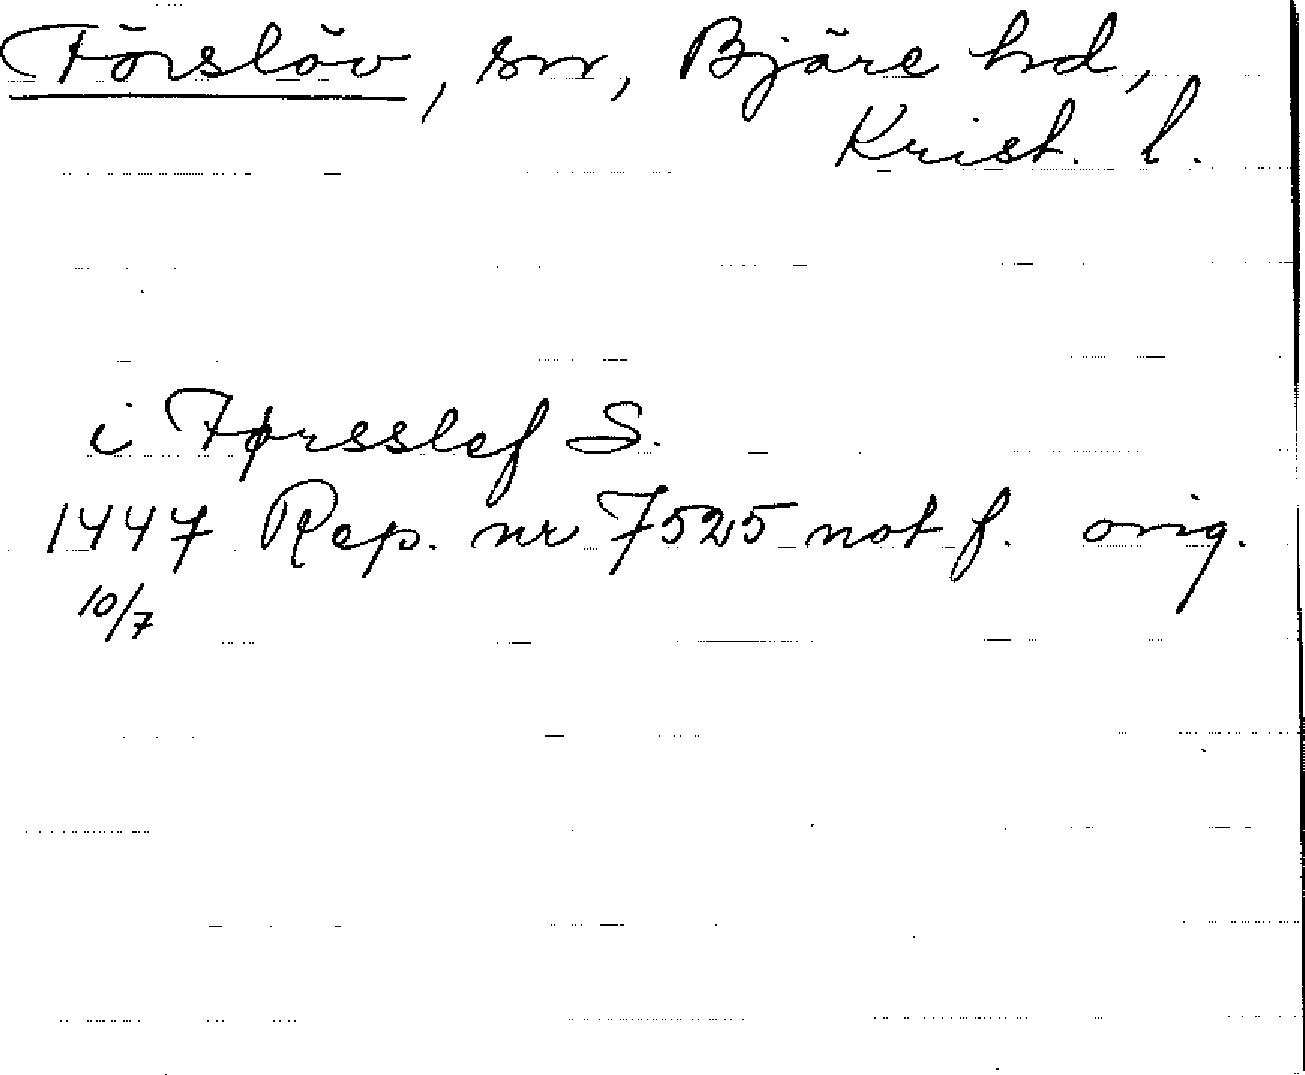 Förslöv, sn, Bjäre hd,
Krist. l.
i Førsslef S.
1447 Rep. nr 7525 not f. orig.
10/7